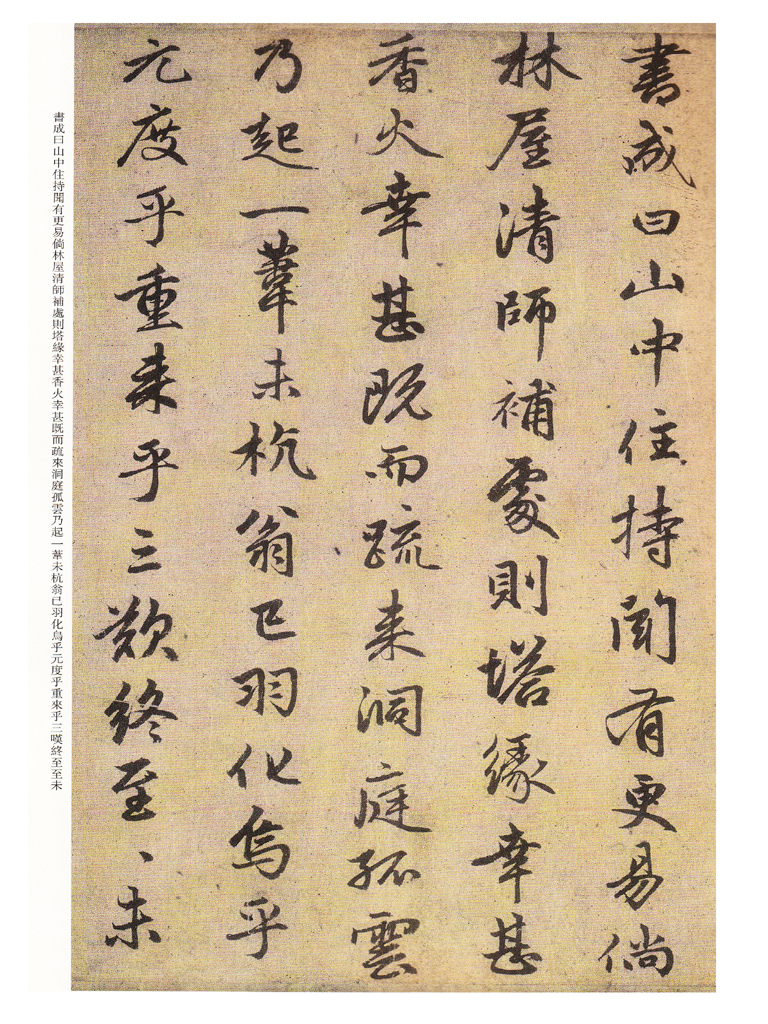 書成曰山中住持聞有更易倘
林屋清師補處則塔緣幸甚
香火幸甚既而疏来洞庭孤雲
乃起一葦未杭翁已羽化烏乎
元度乎重来乎三歎終至、未
書成曰山中住持聞有更易倘林屋清師補處則塔緣幸甚香火幸甚既而疏來洞庭孤雲乃起一葦未杭翁已羽化烏乎元度乎重來乎三嘆終至至未